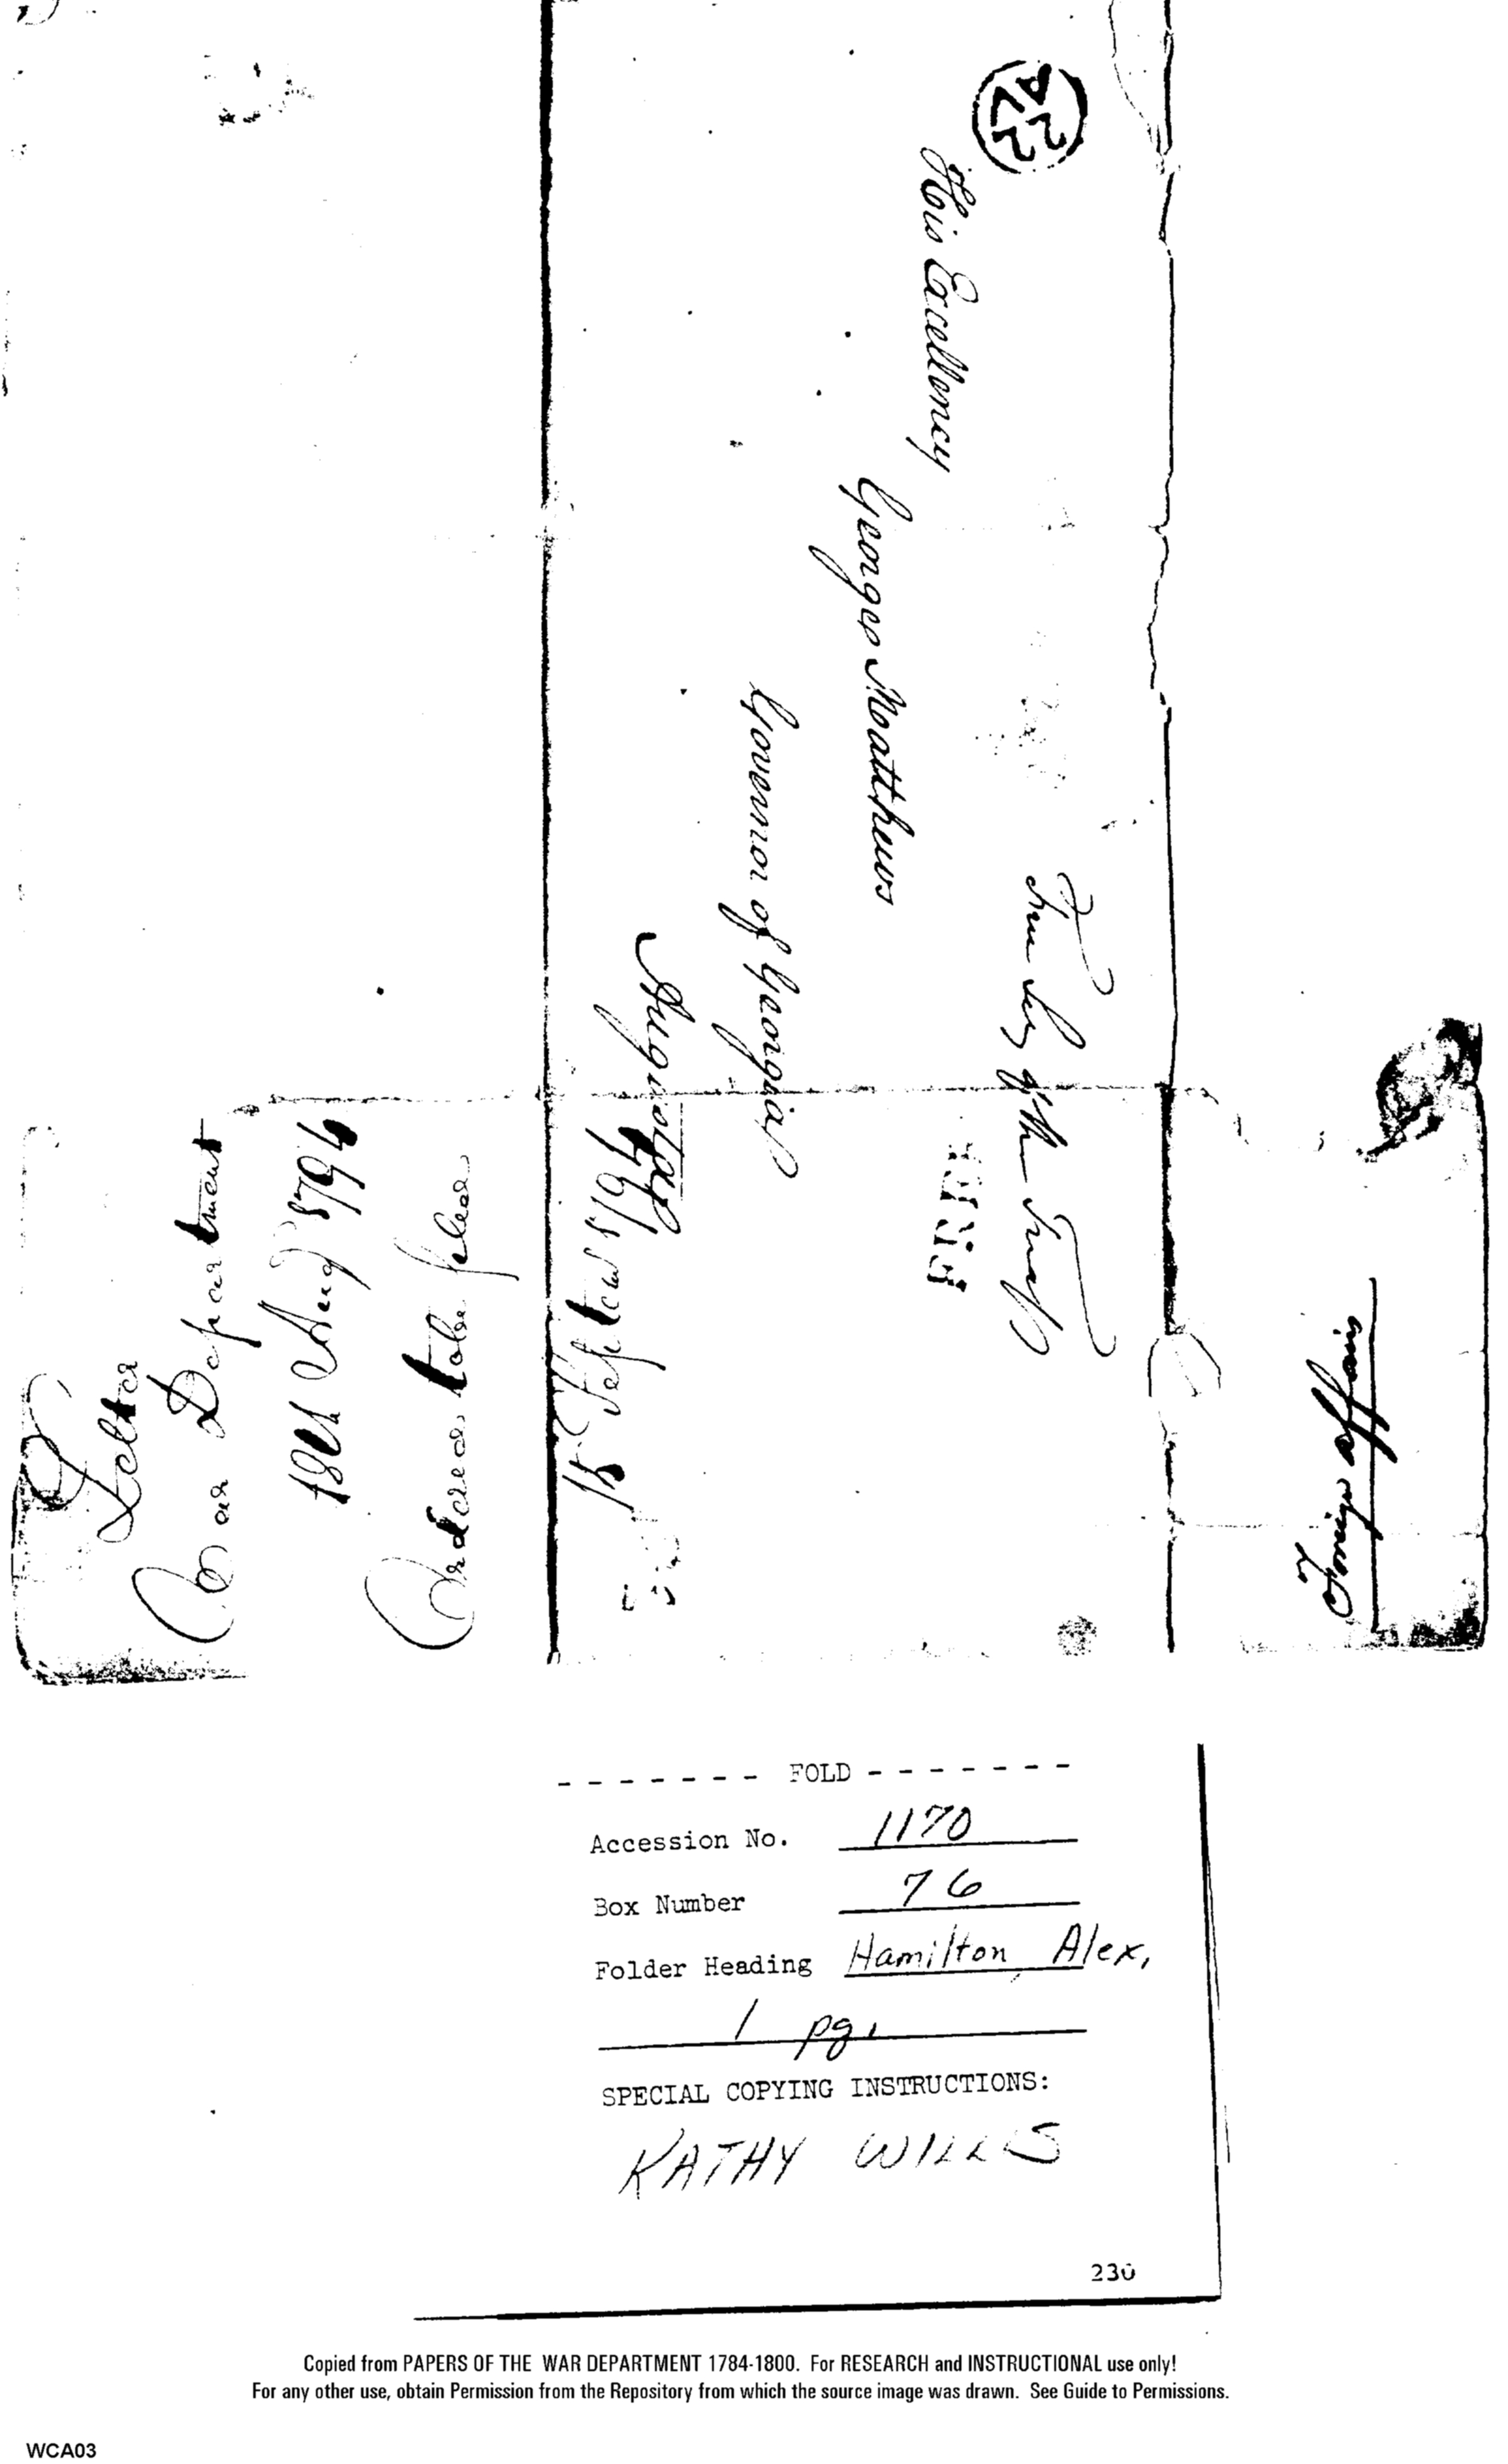 Letter
War Department
18th Augt 1794
Ordered to be filed
15 Septem 1794
22
AV
His Excellency
George Matthews
Governor of Georgia
Augusta
Free Sey of the Treasy
FREE
Foreign affairs
- - - - - - - FOLD - - - - - - -
Accession No. 1170
Box Number 76
Folder Heading Hamilton, Alex,
1 pg.
SPECIAL COPYING INSTRUCTIONS:
KATHY WILLS
230
Copied from PAPERS OF THE WAR DEPARTMENT 1784-1800. For RESEARCH and INSTRUCTIONAL use only!
For any other use, obtain Permission from the Repository from which the source image was drawn. See Guide to Permissions.
WCA03